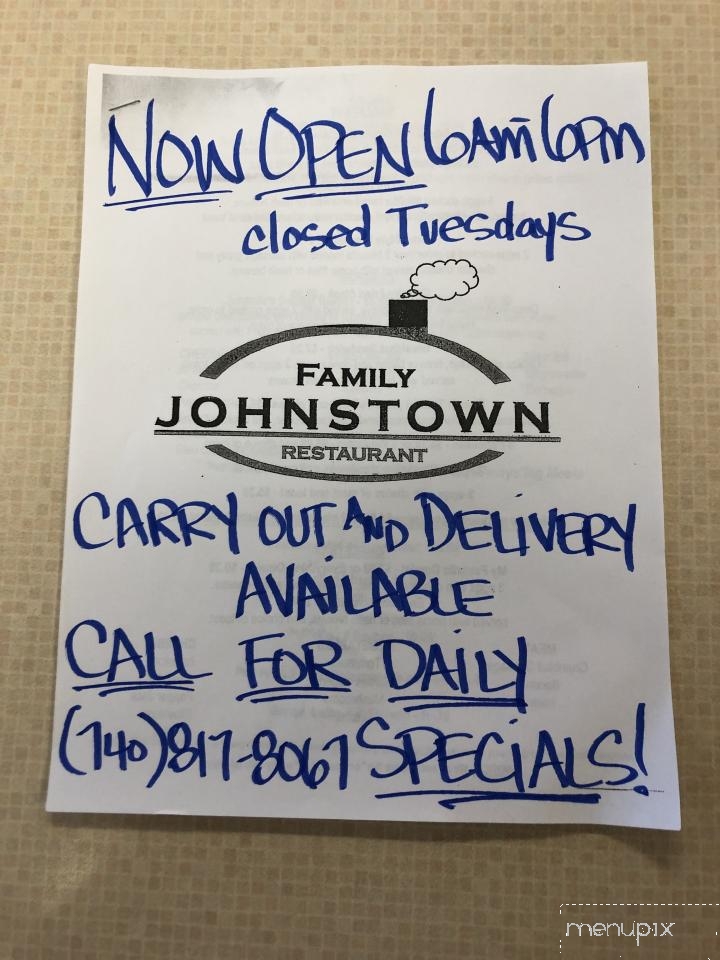 NOW OPEN 6AM 6PM
closed Tuesdays
FAMILY
JOHNSTOWN
RESTAURANT
CARRY OUT AND DELIVERY
AVAILABLE
CALL FOR DAILY
(740)817-8067 SPECiALS!
menupix